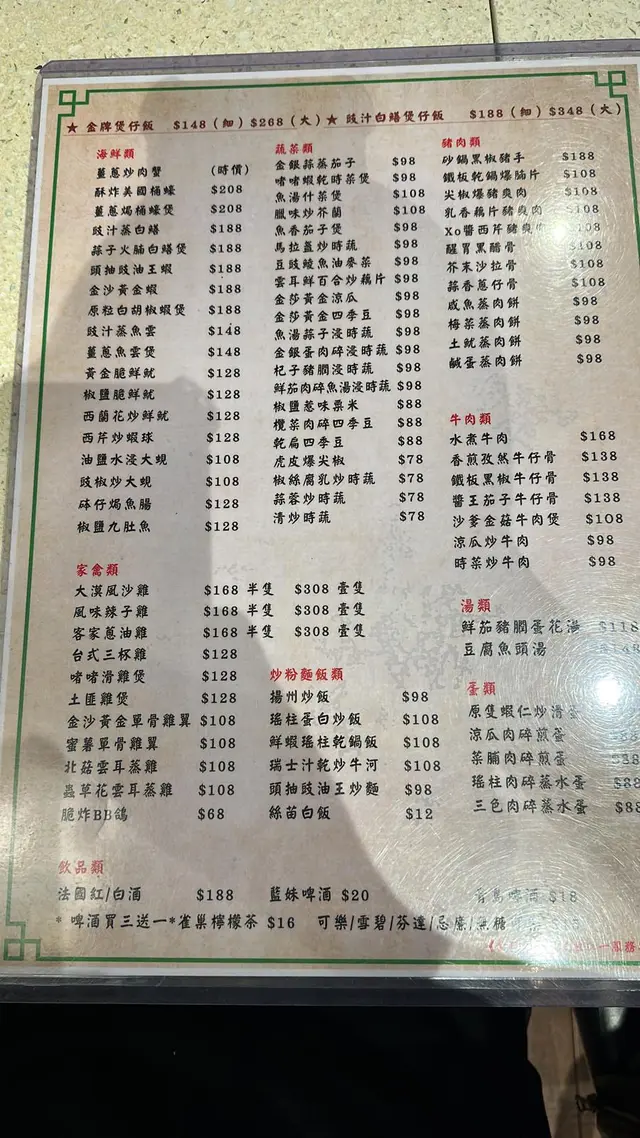 ★ 金牌煲仔飯 $148（細）$268（大）★ 豉汁白鱔煲仔飯 $188（細）$348（大）
海鮮類
薑蔥炒肉蟹 (時價)
酥炸美國桶蠔 $208
薑蔥焗桶蠔煲 $208
豉汁蒸白鱔 $188
蒜子火腩白鱔煲 $188
頭抽豉油王蝦 $188
金沙黃金蝦 $188
原粒白胡椒蝦煲 $188
豉汁蒸魚雲 $148
薑蔥魚雲煲 $148
黃金脆鮮魷 $128
椒鹽脆鮮魷 $128
西蘭花炒鮮魷 $128
西芹炒蝦球 $128
油鹽水浸大蜆 $108
豉椒炒大蜆 $108
砵仔焗魚腸 $128
椒鹽九肚魚 $128
蔬菜類
金銀蒜蒸茄子 $98
啫啫蝦乾時菜煲 $98
魚湯什菜煲 $108
臘味炒芥蘭 $108
魚香茄子煲 $98
馬拉盞炒時蔬 $98
豆豉鯪魚油麥菜 $98
雲耳鮮百合炒藕片 $98
金莎黃金涼瓜 $98
金莎黃金四季豆 $98
魚湯蒜子浸時蔬 $98
金銀蛋肉碎浸時蔬 $98
杞子豬膶浸時蔬 $98
鮮茄肉碎魚湯浸時蔬 $98
椒鹽蔥味粟米 $88
欖菜肉碎四季豆 $88
乾扁四季豆 $88
虎皮爆尖椒 $78
椒絲腐乳炒時蔬 $78
蒜蓉炒時蔬 $78
清炒時蔬 $78
豬肉類
砂鍋黑椒豬手 $188
鐵板乾鍋爆腩片 $108
尖椒爆豬爽肉 $108
乳香藕片豬爽肉 $108
Xo醬西芹豬爽肉 $108
醒胃黑醋骨 $108
芥末沙拉骨 $108
蒜香蔥仔骨 $108
咸魚蒸肉餅 $98
梅菜蒸肉餅 $98
土魷蒸肉餅 $98
鹹蛋蒸肉餅 $98
牛肉類
水煮牛肉 $168
香煎孜然牛仔骨 $138
鐵板黑椒牛仔骨 $138
醬王茄子牛仔骨 $138
沙爹金菇牛肉煲 $108
涼瓜炒牛肉 $98
時菜炒牛肉 $98
家禽類
大漠風沙雞 $168 半隻 $308 壹隻
風味辣子雞 $168 半隻 $308 壹隻
客家蔥油雞 $168 半隻 $308 壹隻
台式三杯雞 $128
啫啫滑雞煲 $128
土匪雞煲 $128
金沙黃金單骨雞翼 $108
蜜薯單骨雞翼 $108
北菇雲耳蒸雞 $108
蟲草花雲耳蒸雞 $108
脆炸BB鴿 $68
炒粉麵飯類
揚州炒飯 $98
瑤柱蛋白炒飯 $108
鮮蝦瑤柱乾鍋飯 $108
瑞士汁乾炒牛河 $108
頭抽豉油王炒麵 $98
絲苗白飯 $12
湯類
鮮茄豬膶蛋花湯 $118
豆腐魚頭湯
蛋類
原隻蝦仁炒滑蛋
涼瓜肉碎煎蛋
菜脯肉碎煎蛋
瑤柱肉碎蒸水蛋 $88
三色肉碎蒸水蛋 $88
飲品類
法國紅/白酒 $188 藍妹啤酒 $20 青島啤酒 $18
* 啤酒買三送一*雀巢檸檬茶 $16 可樂/雪碧/芬達/忌廉/無糖